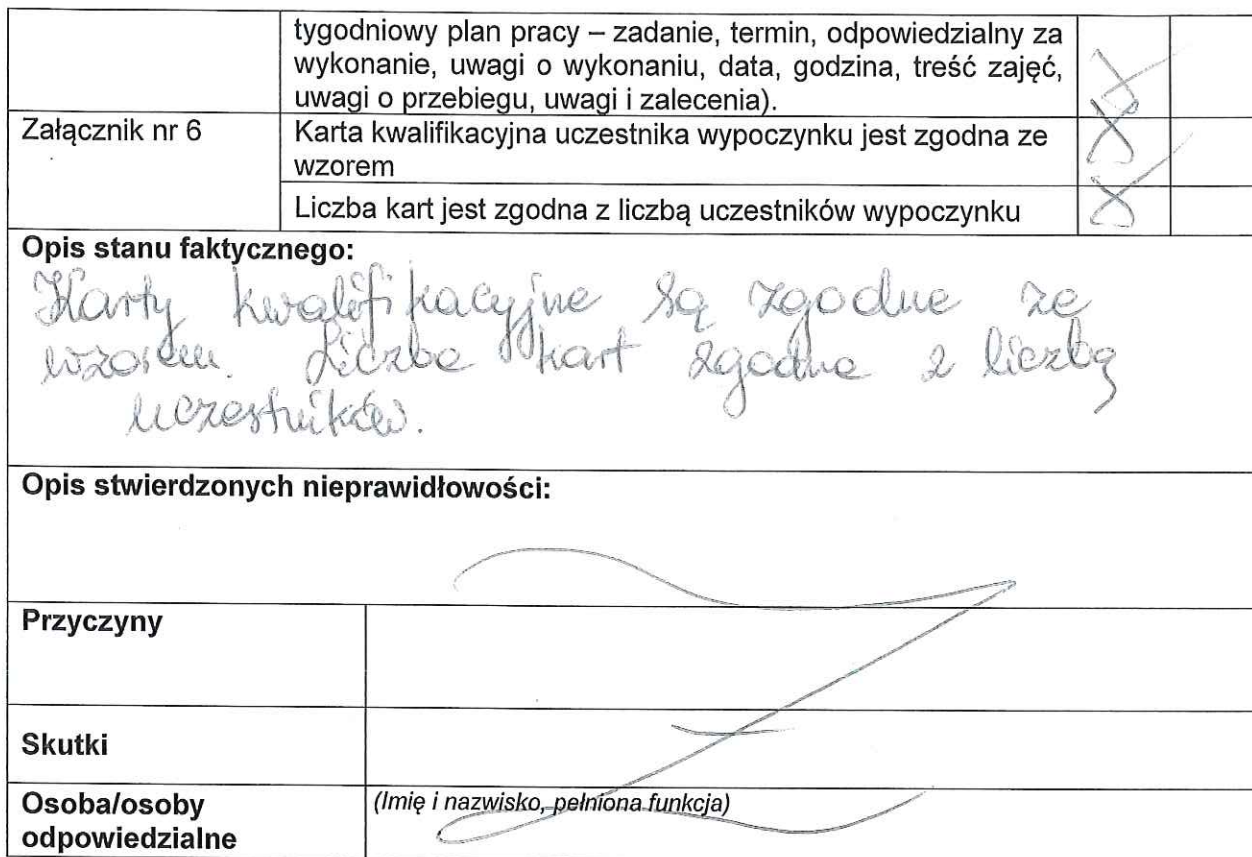 tygodniowy plan pracy – zadanie, termin, odpowiedzialny za
wykonanie, uwagi o wykonaniu, data, godzina, treść zajęć,
uwagi o przebiegu, uwagi i zalecenia).
Załącznik nr 6
Karta kwalifikacyjna uczestnika wypoczynku jest zgodna ze
wzorem
Liczba kart jest zgodna z liczbą uczestników wypoczynku
Opis stanu faktycznego:
Karty kwalifikacyjne są zgodne ze
wzorem. Liczba kart zgodna z liczbą
uczestników.
Opis stwierdzonych nieprawidłowości:
Przyczyny
Skutki
Osoba/osoby
odpowiedzialne
(Imię i nazwisko, pełniona funkcja)